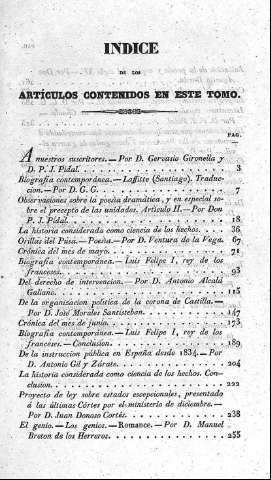 INDICE
DE LOS
ARTÍCULOS CONTENIDOS EN ESTE TOMO.
PAG.
A nuestros suscritores. — Por D. Gervasio Gironella y
D. P. J. Pidal. 3
Biografía contemporánea. — Laffitte (Santiago). Traduc-
cion. — Por D. G. G.
Observaciones sobre la poesía dramática, y en especial so-
bre el precepto de las unidades. Artículo II. — Por Don
P. J. Pidal. 18
La historia considerada como ciencia de los hechos. 36
Orillas del Pusa. — Poesía. — Por D. Ventura de la Vega. 67
Crónica del mes de mayo. 71
Biografía contemporánea. — Luis Felipe I, rey de los
franceses. 93
Del derecho de intervencion. — Por D. Antonio Alcalá
Galiano. 115
De la organizacion política de la corona de Castilla. —
Por D. José Morales Santisteban. 147
Crónica del mes de junio. 173
Biografía contemporánea. — Luis Felipe I, rey de los
franceses. — Conclusion. 189
De la instruccion pública en España desde 1834. — Por
D. Antonio Gil y Zárate. 204
La historia considerada como ciencia de los hechos. Con-
clusion. 222
Proyecto de ley sobre estados escepcionales, presentado
á las últimas Córtes por el ministerio de diciembre. —
Por D. Juan Donoso Cortés. 238
El genio. — Los genios. — Romance. — Por D. Manuel
Breton de los Herreros. 255